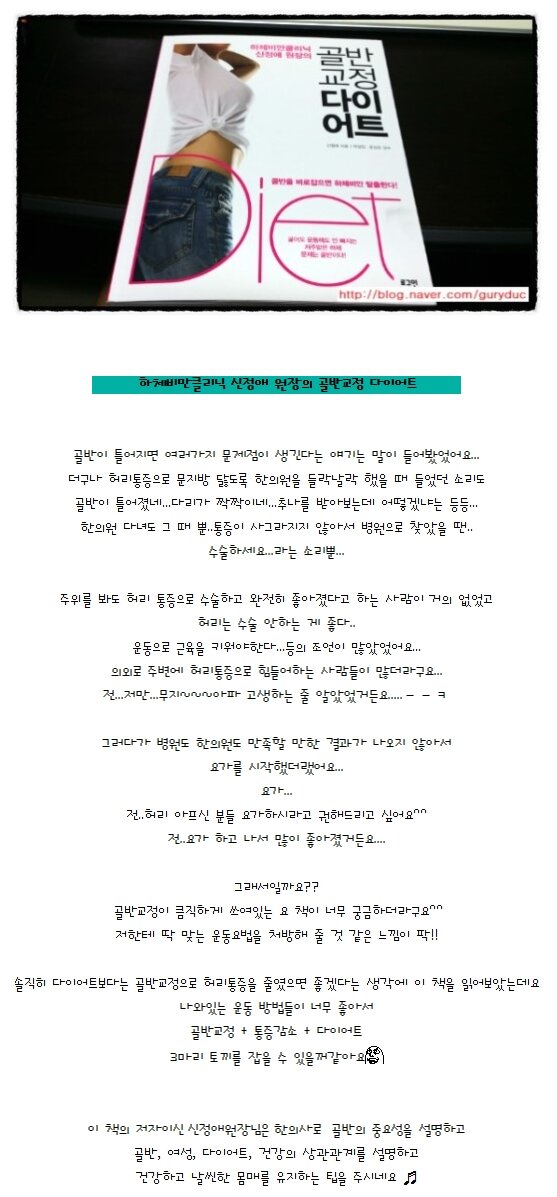 하체비만클리닉
신정애 원장의
골반
교정
다이
어트
골반을 바로잡으면 하체비만 탈출한다!
Diet
굶어도 운동해도 안 빠지는
저주받은 하체
문제는 골반이다!
로그인
http://blog.naver.com/guryduc
하체비만클리닉 신정애 원장의 골반교정 다이어트
골반이 틀어지면 여러가지 문제점이 생긴다는 얘기는 많이 들어봤었어요...
더구나 허리통증으로 문지방 닳도록 한의원을 들락날락 했을 때 들었던 소리도
골반이 틀어졌네...다리가 짝짝이네...추나를 받아보는데 어떻겠냐는 등등...
한의원 다녀도 그 때 뿐..통증이 사그라지지 않아서 병원으로 찾았을 땐..
수술하세요...라는 소리뿐...
주위를 봐도 허리 통증으로 수술하고 완전히 좋아졌다고 하는 사람이 거의 없었고
허리는 수술 안하는 게 좋다..
운동으로 근육을 키워야한다...등의 조언이 많았었어요...
의외로 주변에 허리통증으로 힘들어하는 사람들이 많더라구요...
전...저만...무지~~~아파 고생하는 줄 알았었거든요..... ㅡ ㅡ ㅋ
그러다가 병원도 한의원도 만족할 만한 결과가 나오지 않아서
요가를 시작했더랬어요...
요가...
전..허리 아프신 분들 요가하시라고 권해드리고 싶어요^^
전..요가 하고 나서 많이 좋아졌거든요....
그래서일까요??
골반교정이 큼직하게 쓰여있는 요 책이 너무 궁금하더라구요^^
저한테 딱 맞는 운동요법을 처방해 줄 것 같은 느낌이 팍!!
솔직히 다이어트보다는 골반교정으로 허리통증을 줄였으면 좋겠다는 생각에 이 책을 읽어보았는데요
나와있는 운동 방법들이 너무 좋아서
골반교정 + 통증감소 + 다이어트
3마리 토끼를 잡을 수 있을꺼같아요
이 책의 저자이신 신정애원장님은 한의사로 골반의 중요성을 설명하고
골반, 여성, 다이어트, 건강의 상관관계를 설명하고
건강하고 날씬한 몸매를 유지하는 팁을 주시네요 ♬